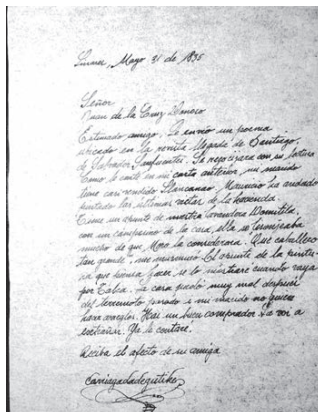 Linares, Mayo 31 de 1835
Señor
Juan de la Cruz Donoso
Estimado amigo. Le envío un poema
ubicado en la revista llegada de Santiago,
de Salvador Sanfuentes. Se regocizará con su lectura
Como le conté en mi carta anterior, mi marido
tiene casi vendido Mauricio ha andado
pintando las últimas vistas de la hacienda.
Tiene un apunte de nuestra lavandera Domitila,
con un campesino de la casa, ella se
mucho de que Moro la considerara. Que caballero
tan grande, me murmuró. El apunte de la pintura
que piensa hacer se lo mostrare cuando vaya
por Talca. La casa quedó muy mal después
del terremoto pasado i mi marido no quiere
hacer arreglos. Hai un buen comprador. La voi a
extrañar. Ya le contare.
Reciba el afecto de su amiga